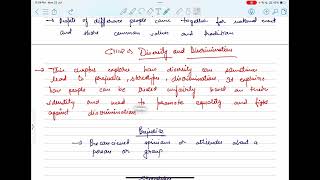 → People of difference people came together for national event
and share common values and tradition
Chap 2: Diversity and Discrimination
→ This chapter explores how diversity can sometimes
lead to prejudice, stereotypes, discrimination. It explains
how people can be treated unfairly based on their
identity and need to promote equality and fight
against discrimination
Prejudice
→ Preconceived opinions or attitudes about a
person or group